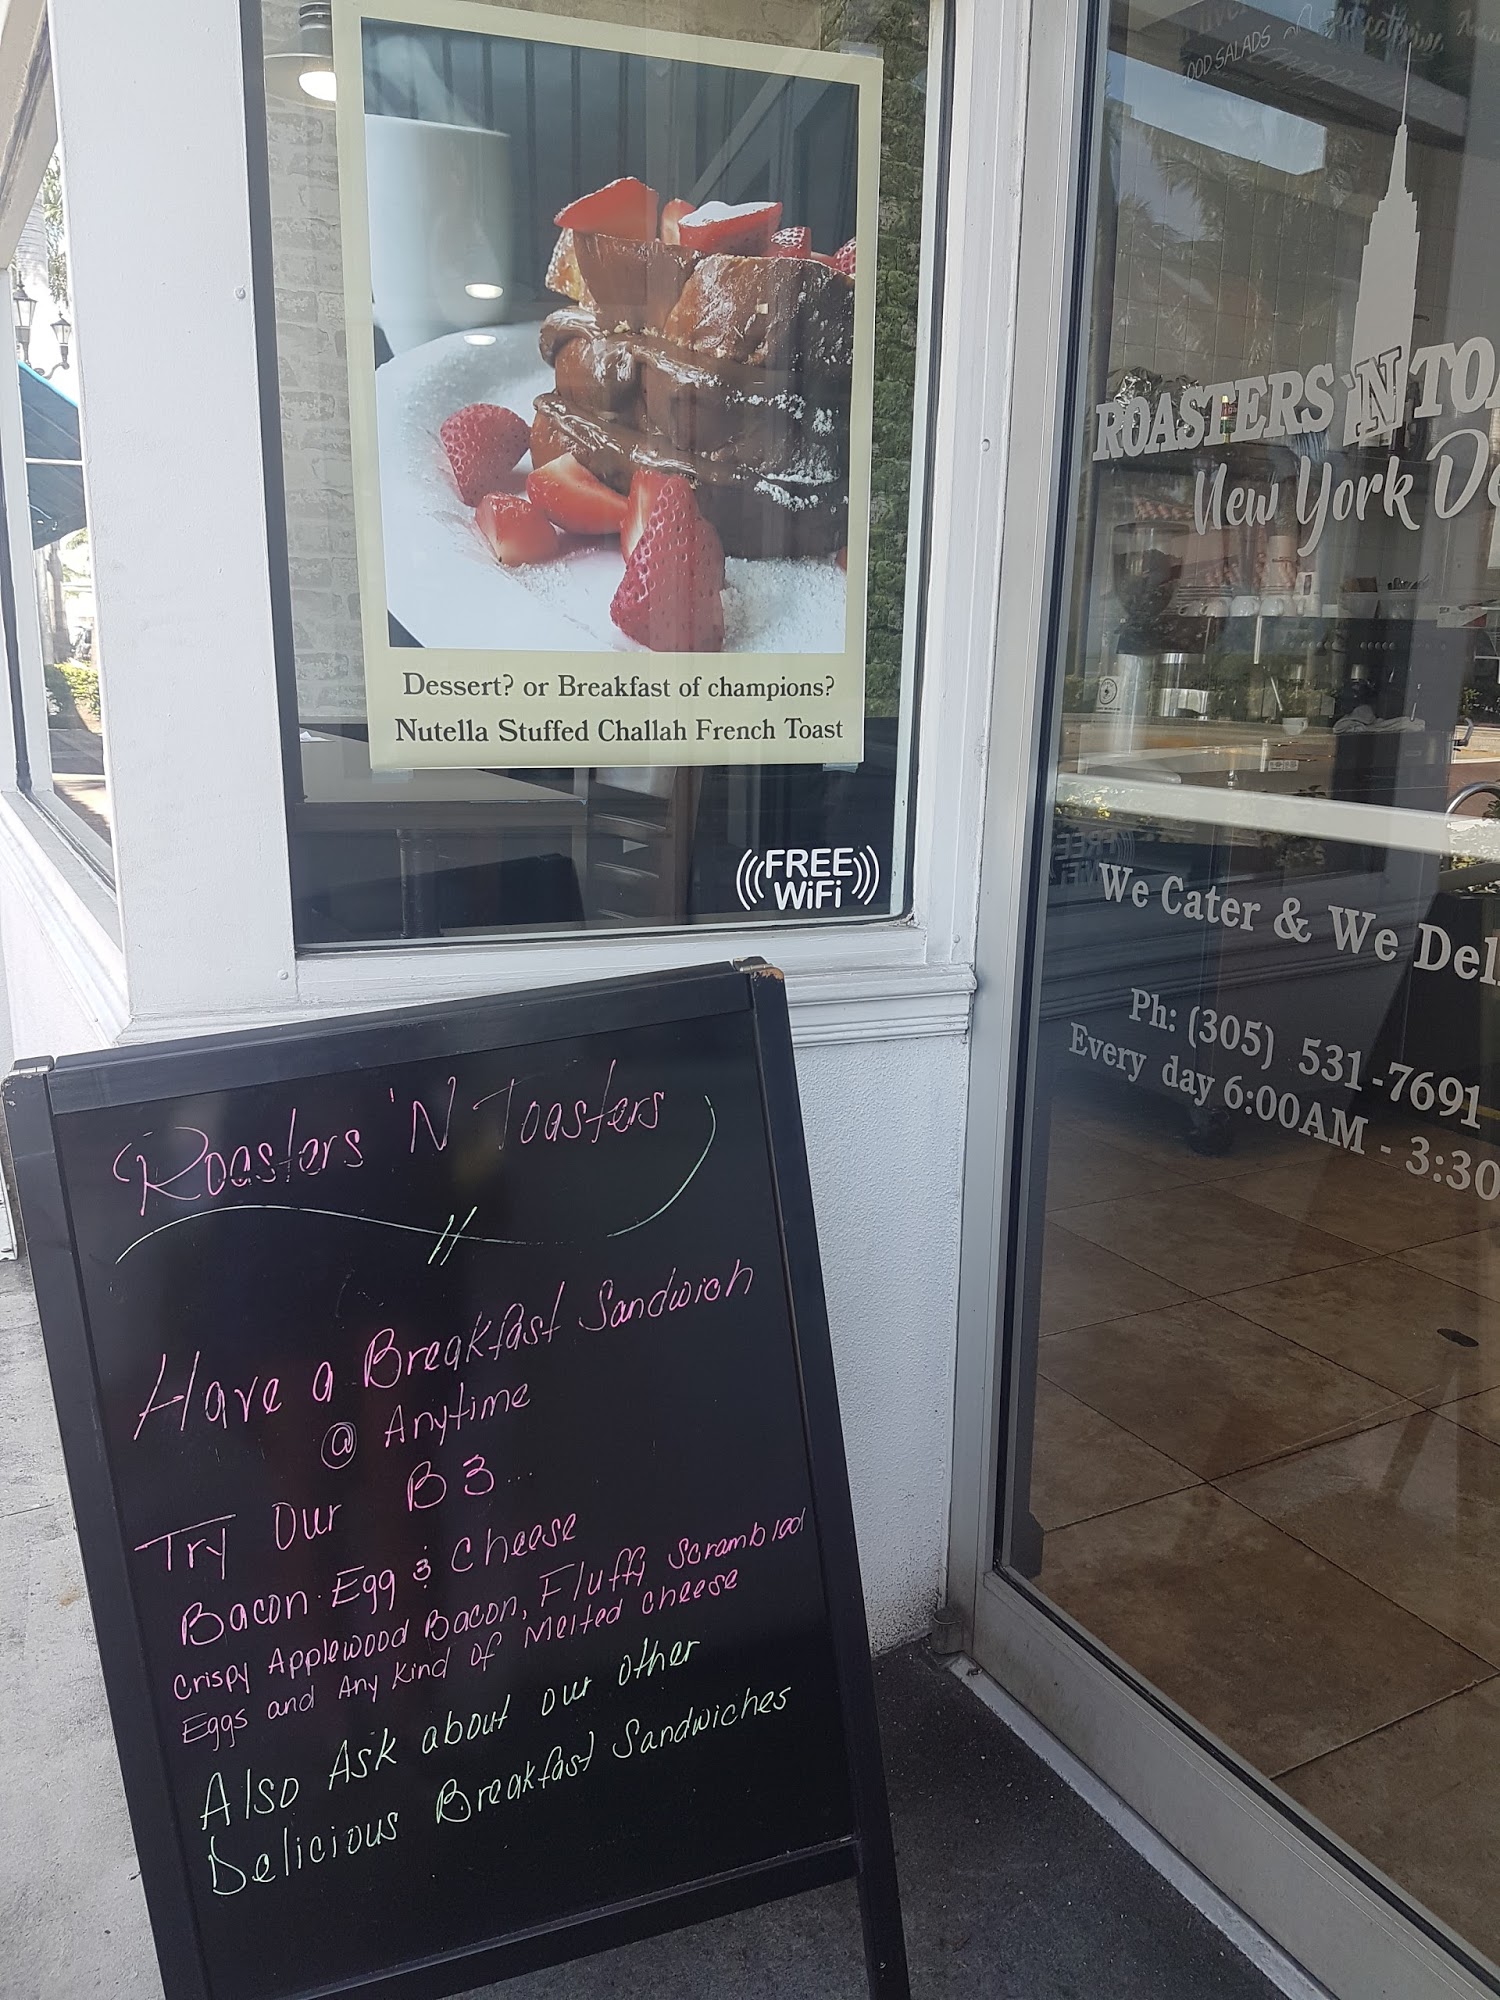 OOD SALADS
ROASTERS 'N TOA
New York De
Dessert? or Breakfast of champions?
Nutella Stuffed Challah French Toast
((( FREE )))
WiFi
We Cater & We Deli
Ph: (305) 531-7691
Every day 6:00AM - 3:30
Roasters 'N Toasters
Have a Breakfast Sandwich
@ Anytime
Try Our B 3...
Bacon Egg & Cheese
Crispy Applewood Bacon, Fluffy Scrambled
Eggs and Any Kind of Melted Cheese
Also Ask about our other
Delicious Breakfast Sandwiches